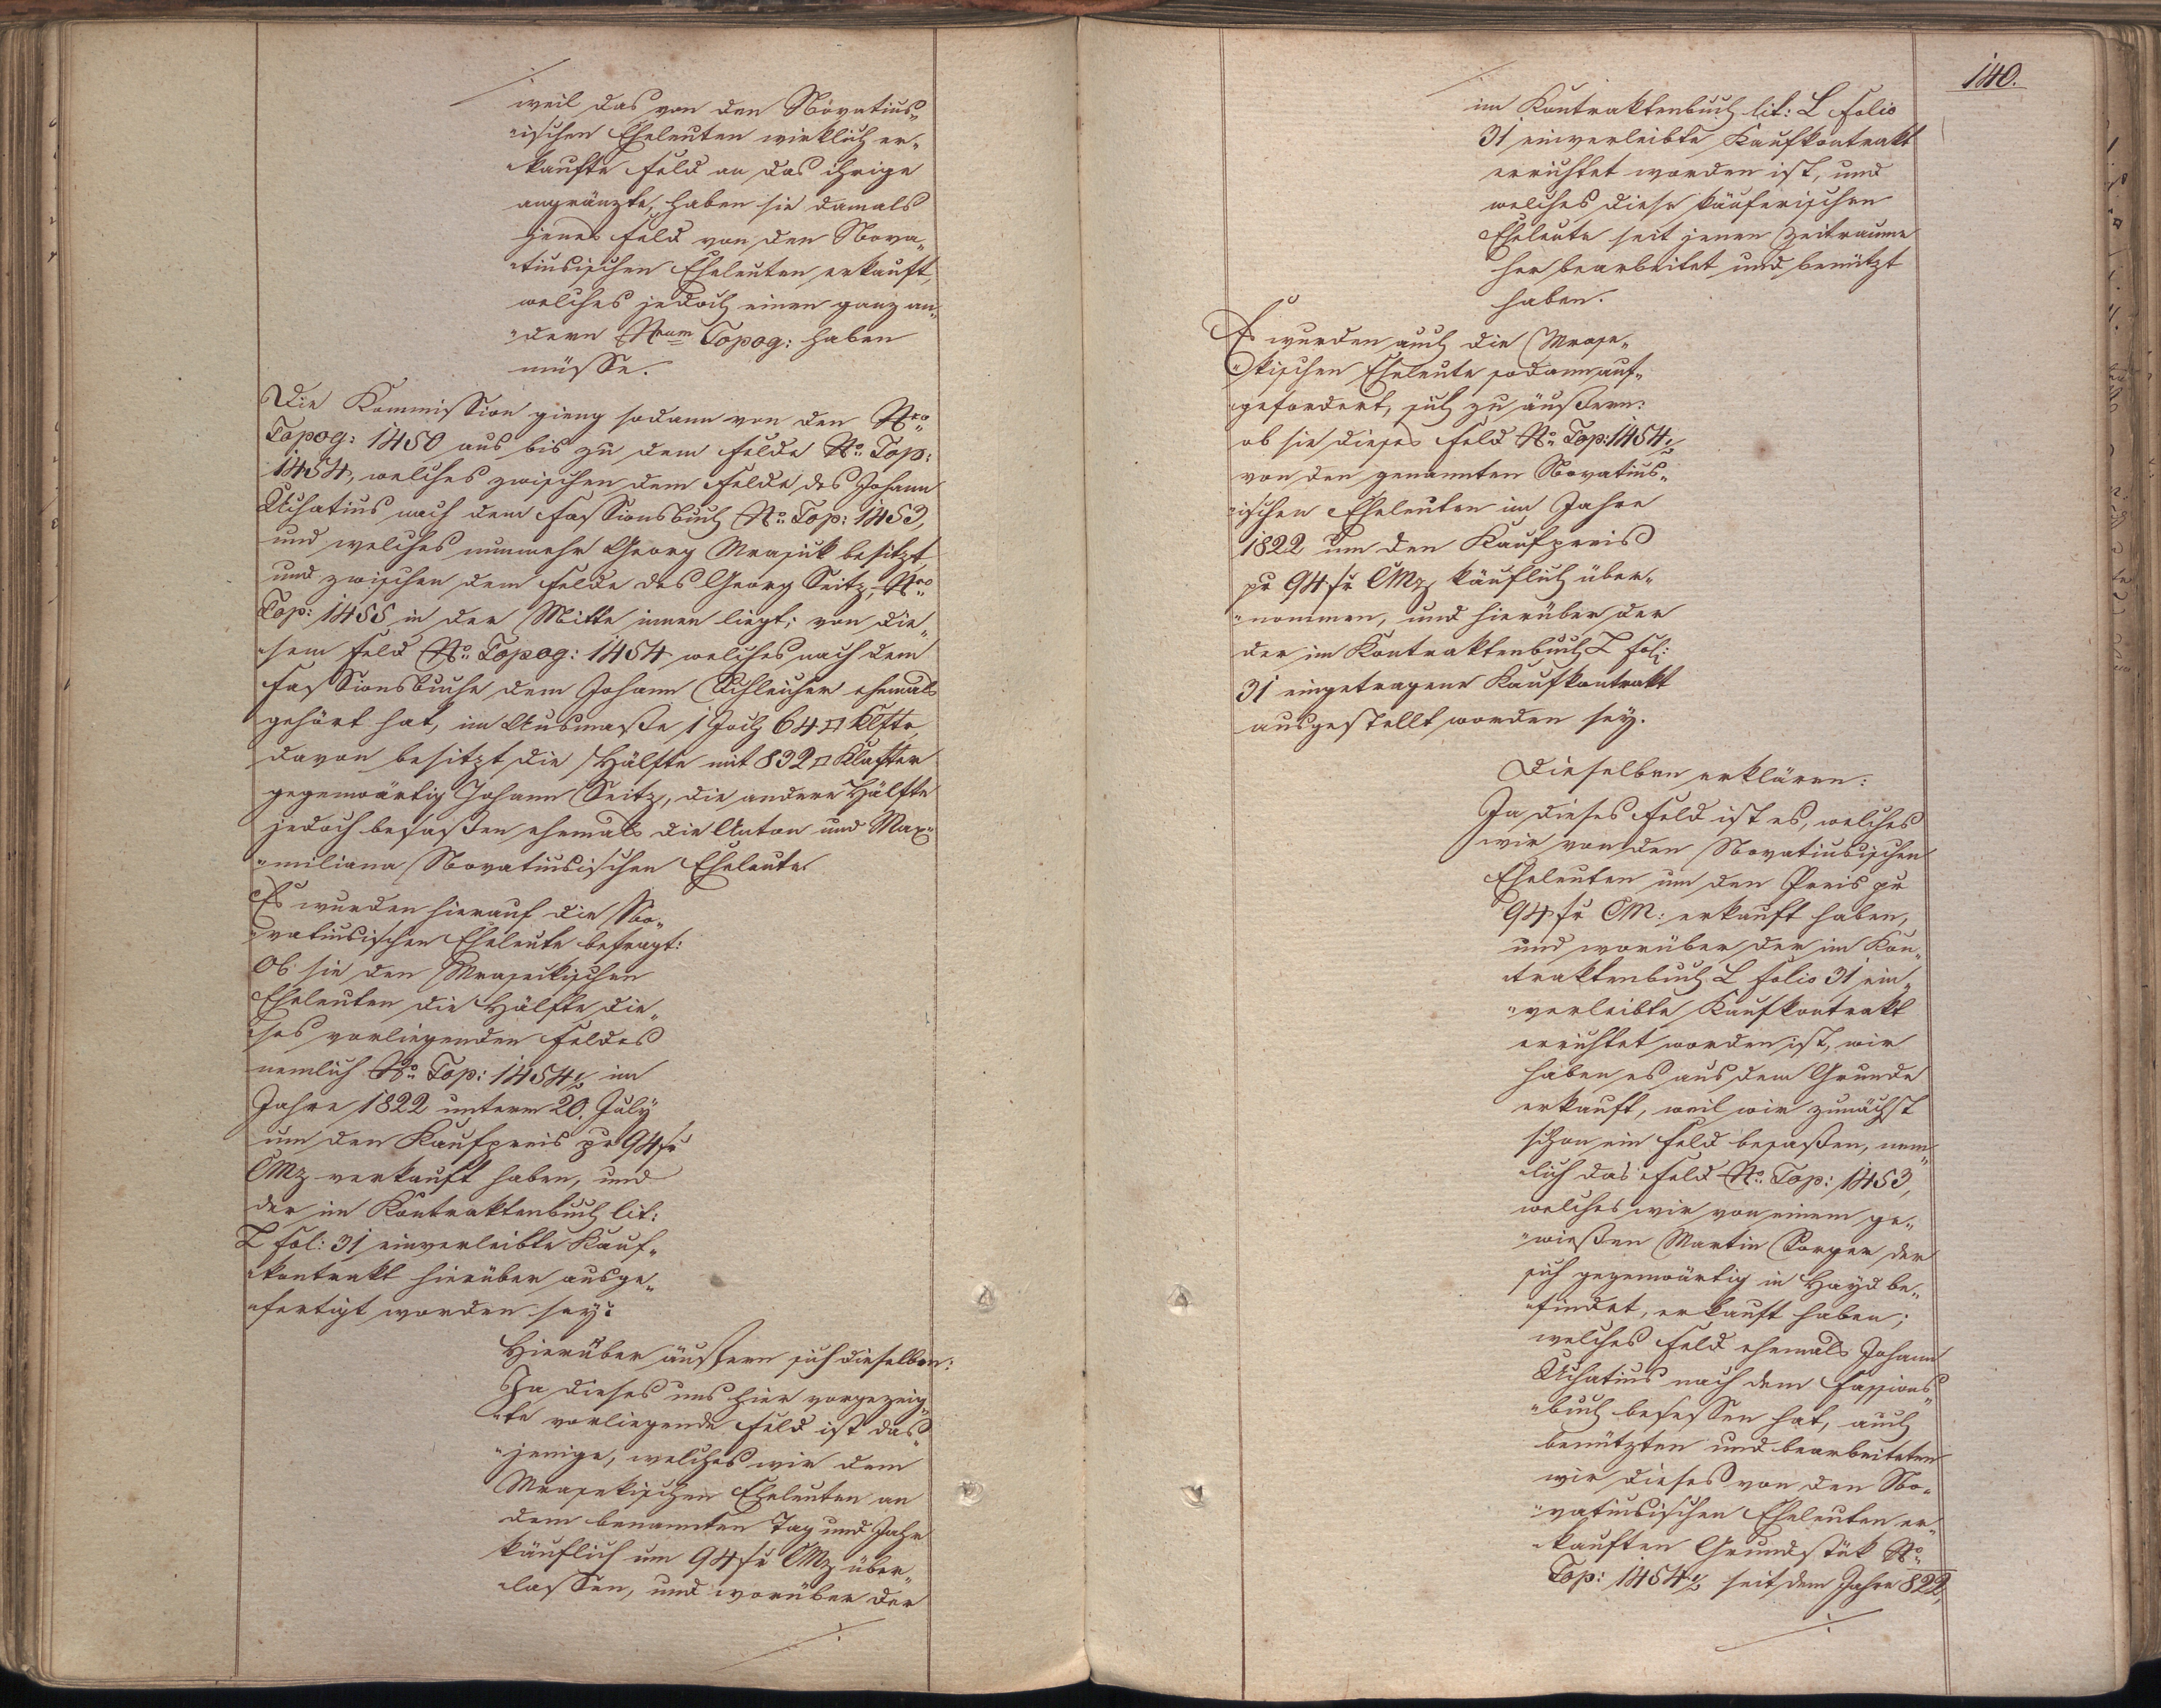 weil das von den Novatius„
„ischen Eheleuten wirklich er„
„kaufte Feld an das ihrige
angränzte, haben sie damals
jenes Feld von den Nova„
„tiusischen Eheleuten erkauft,
welches jedoch einen ganz an„
„dern Nrum Topog: haben
müsse.
Die Kommission gieng sodann von den Nro
Topog: 1450 aus bis zu dem Felde No Top:
1454, welches zwischen dem Felde des Johann
Achatius nach dem Fassionsbuch No Top: 1453,
und welches nunmehr Georg Mrasek besitzt,
und zwischen dem Felde des Georg Seitz, Nro
Top: 1455 in der Mitte innen liegt; von die„
„sem Feld No Topog: 1454 welches nach dem
Fassionsbuche dem Johann Schleicher ehemals
gehört hat, im Ausmaße 1 Joch 64 □ Klftr,
davon besitzt die Hälfte mit 832 □ Klafter
gegenwärtig Johann Seitz, die andere Hälfte
jedoch besaßen ehemals die Anton und Maxi„
„miliana Novatiusischen Eheleute.
Es wurden hierauf die No„
„vatiusischen Eheleute befragt:
Ob sie den Mrasekischen
Eheleuten die Hälfte die„
„ses vorliegenden Feldes
nemlich No Top: 1454½ im
Jahre 1822 unterm 20. July
um den Kaufpreis pr 94 fr
CMz verkauft haben, und
der im Kontraktenbuch lit:
L fol: 31 einverleibte Kauf„
„kontrakt hierüber ausge„
„fertigt worden sey?
Hierüber äußern sich dieselben:
Ja dieses uns hier vorgezeig„
„te vorliegende Feld ist das„
„jenige, welches wir dem
Mrasekischen Eheleuten an
dem benannten Tag und Jahr
käuflich um 94 fr CMz über„
„lassen, und worüber der
./.
140.
im Kontraktenbuch lit: L Folio
31 einverleibte Kaufkontrakt
errichtet worden ist, und
welches diese käuferischen
Eheleute seit jenem Zeitraume
her bearbeitet und benützt
haben.
Es wurden auch die Mrase„
„kischen Eheleute sodann auf„
„gefordert, sich zu äußern:
ob sie dieses Feld No Top: 1454½
von den genannten Novatius„
„ischen Eheleuten im Jahre
1822 um den Kaufpreis
pr 94 fr CMz käuflich über„
„nommen, und hierüber der
der im Kontraktenbuch L fol:
31 eingetragene Kaufkontrakt
ausgestellt worden sey.
Dieselben erklären:
Ja dieses Feld ist es, welches
wir von den Novatiusischen
Eheleuten um den Preis pr
94 fr CM: erkauft haben,
und worüber der im Kon„
„traktenbuch L Folio 31 ein„
„verleibte Kaufkontrakt
errichtet worden ist, wir
haben es aus dem Grunde
erkauft, weil wir zunächst
schon ein Feld besaßen, nem„
„lich das Feld No Top: 1453,
welches wir von einem ge„
„wießen Martin Sorger der
sich gegenwärtig in Hayd be„
„findet, erkauft haben;
welches Feld ehemals Johann
Achatius nach dem Fassions„
„buch besessen hat, auch
benützten und bearbeiteten
wir dieses von den No„
„vatiusischen Eheleuten er„
„kauften Grundstük No
Top: 1454½ seit dem Jahre 822,
./.